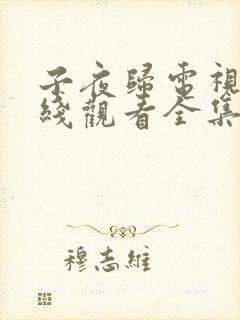 子夜歸電視
綫觀看全集
穆志維